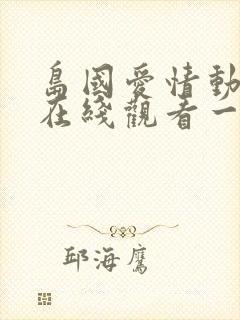 島國愛情動
在綫觀看一
邱海鷹